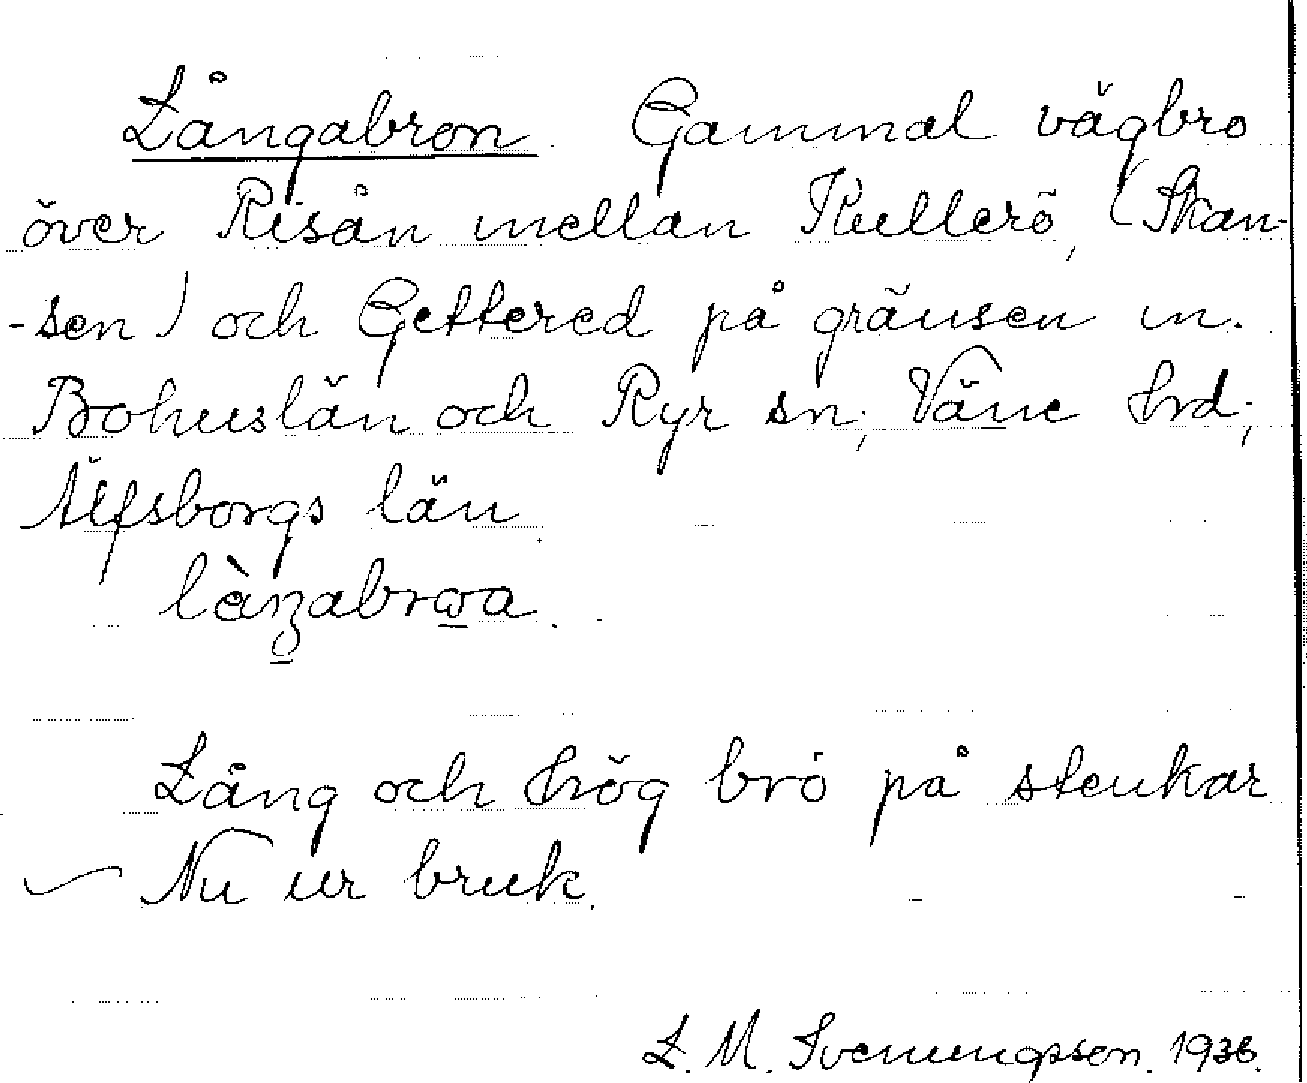 Långabron. Gammal vägbro
över Risån mellan Kullerö, (Skan-
-sen) och Gettered på gränsen m.
Bohuslän och Ryr sn; Väne hrd;
Älfsborgs län.
làŋabrωa.
Lång och hög bro på stenkar
Nu ur bruk.
L. M. Svenungsson. 1936.